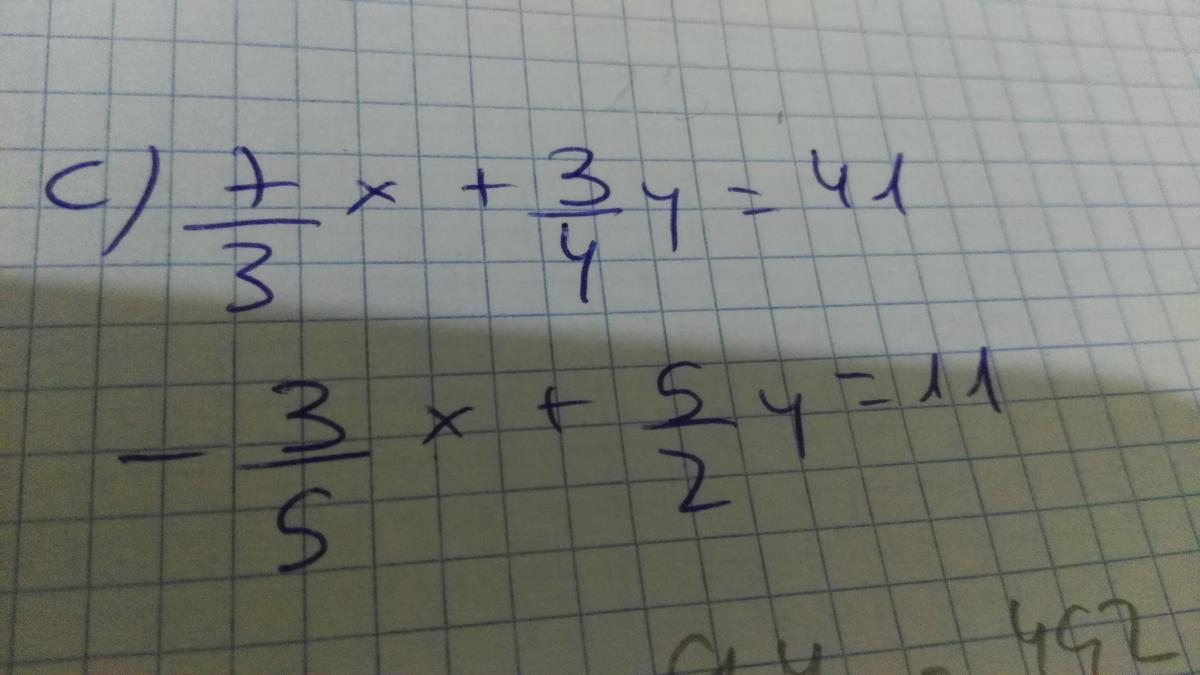 c) 7/3 x + 3/4 y = 41
- 3/5 x + 5/2 y = 11